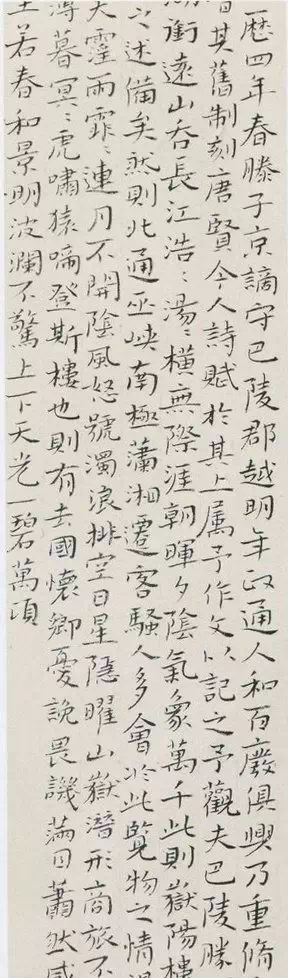 曆四年春滕子京謫守巴陵郡越明年政通人和百廢俱興乃重脩
其舊制刻唐賢今人詩賦於其上属予作文以記之予觀夫巴陵勝
銜遠山吞長江浩〻湯〻橫無際涯朝暉夕陰氣象萬千此則嶽陽樓
之述備矣然則北通巫峽南極瀟湘遷客騷人多會於此覽物之情
夫霪雨霏〻連月不開陰風怒號濁浪排空日星隱曜山嶽潛形商旅不
薄暮冥〻虎嘯猿啼登斯樓也則有去國懷鄉憂讒畏譏滿目蕭然感
至若春和景明波瀾不驚上下天光一碧萬頃